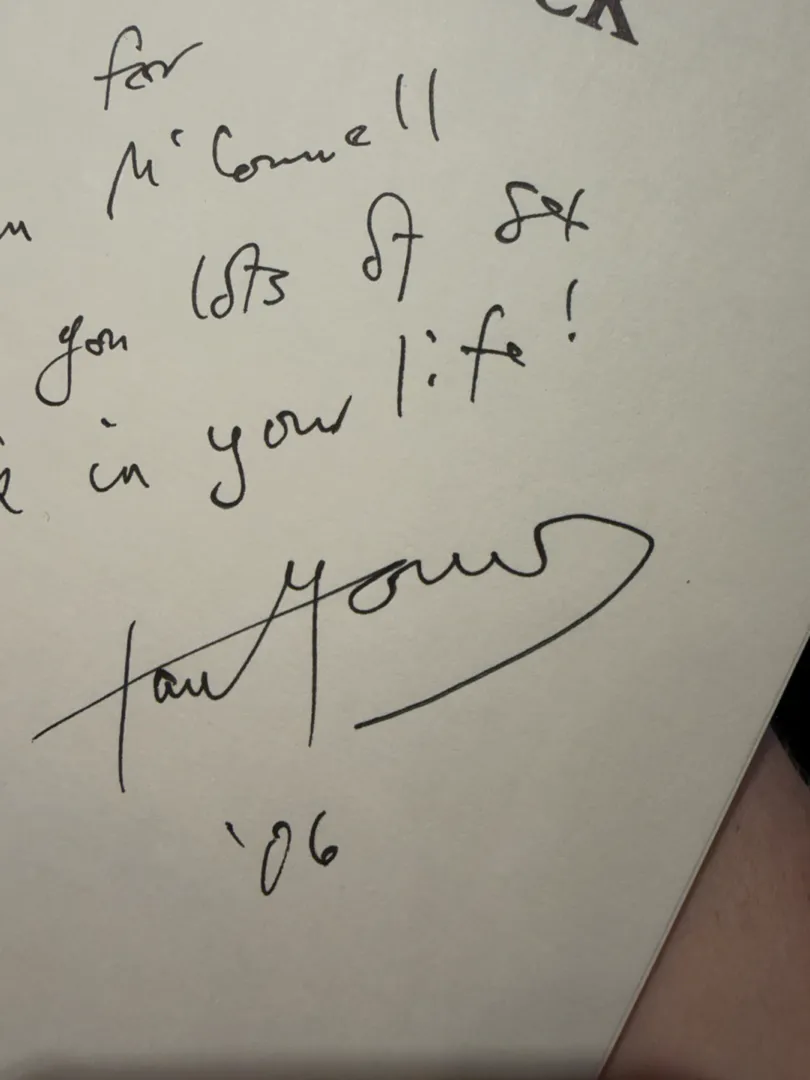 CK
for
McConnell
you lots of sex
in your life!
'06